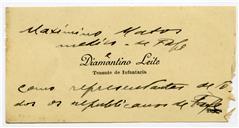 Maximino Matos
medico - de Fafe
e
Diamantino Leite
Tenente de Infantaria
como representantes de to
dos os republicanos de Fafe